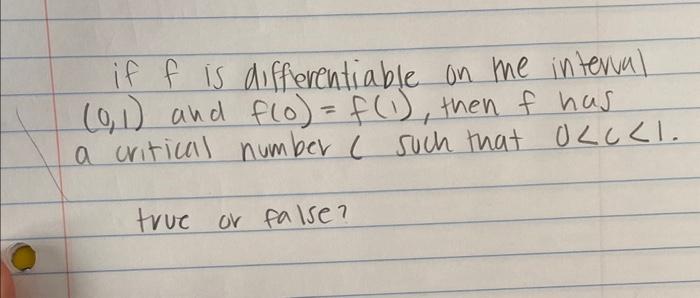 if f is differentiable on the interval
(0,1) and f(0) = f(1), then f has
a critical number c such that 0<c<1.
true or false?